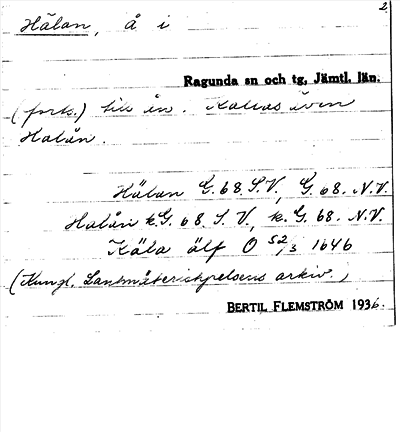 2.
Hålan, å i
Ragunda sn och tg, Jämtl. län.
(forts.) till ån. Kallas även
Halån.
Hälan G. 68. S.V., G. 68. N.V.
Halån k. G. 68. S. V., k. G. 68. N.V.
Käla älf O 52/3 1646
(Kungl. Lantmäteristyrelsens arkiv.)
BERTIL FLEMSTRÖM 1936.